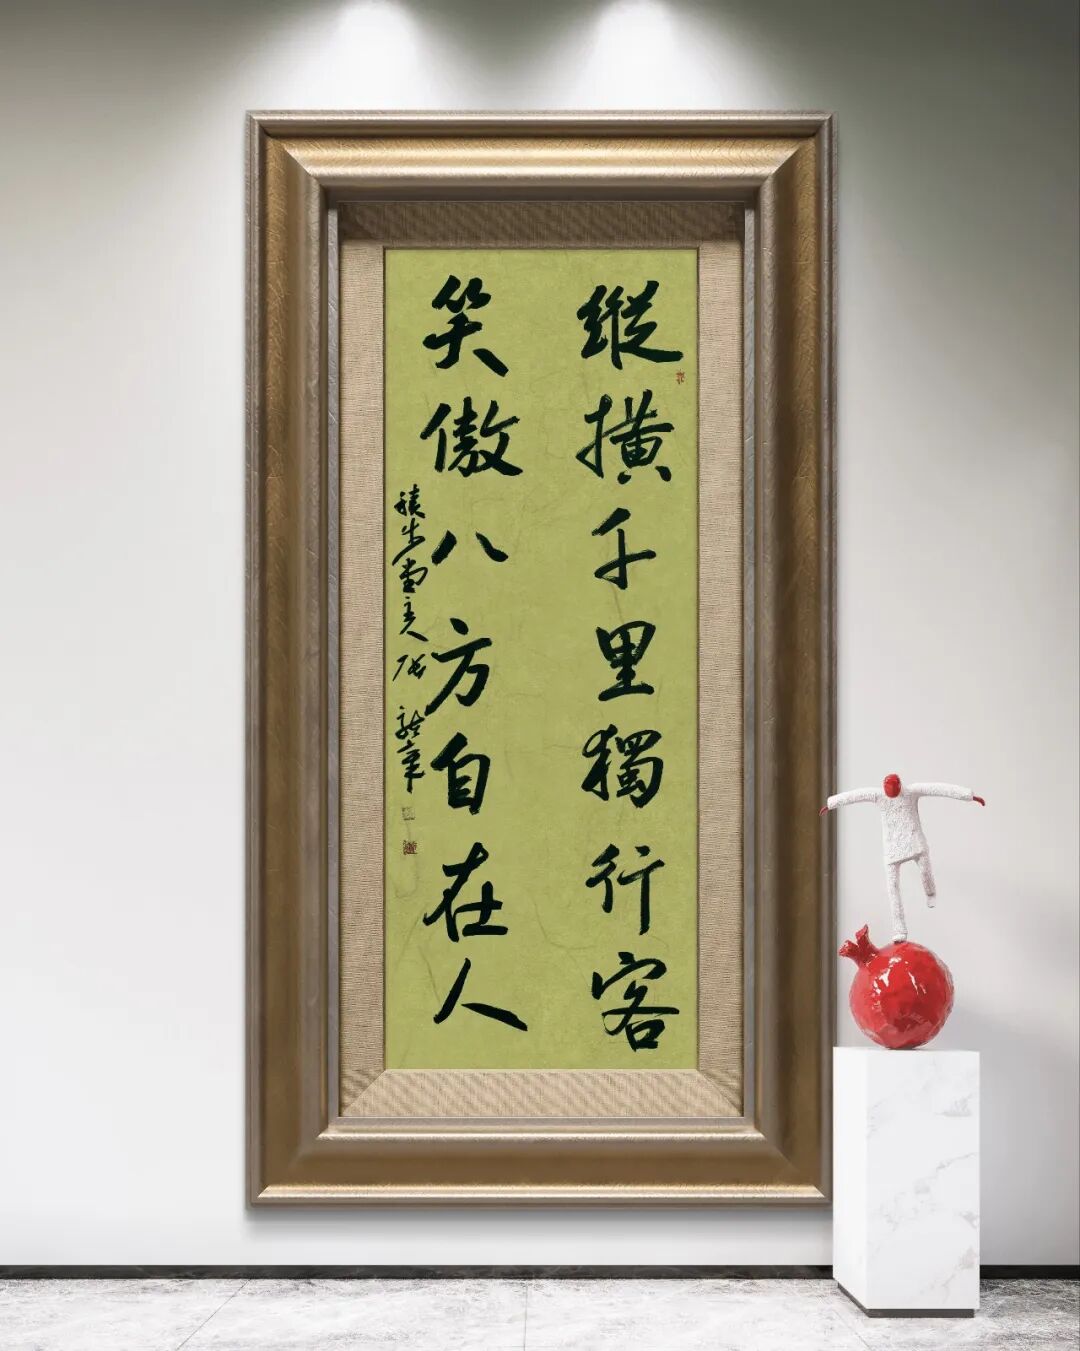 縱橫千里獨行客
笑傲八方自在人
堂主